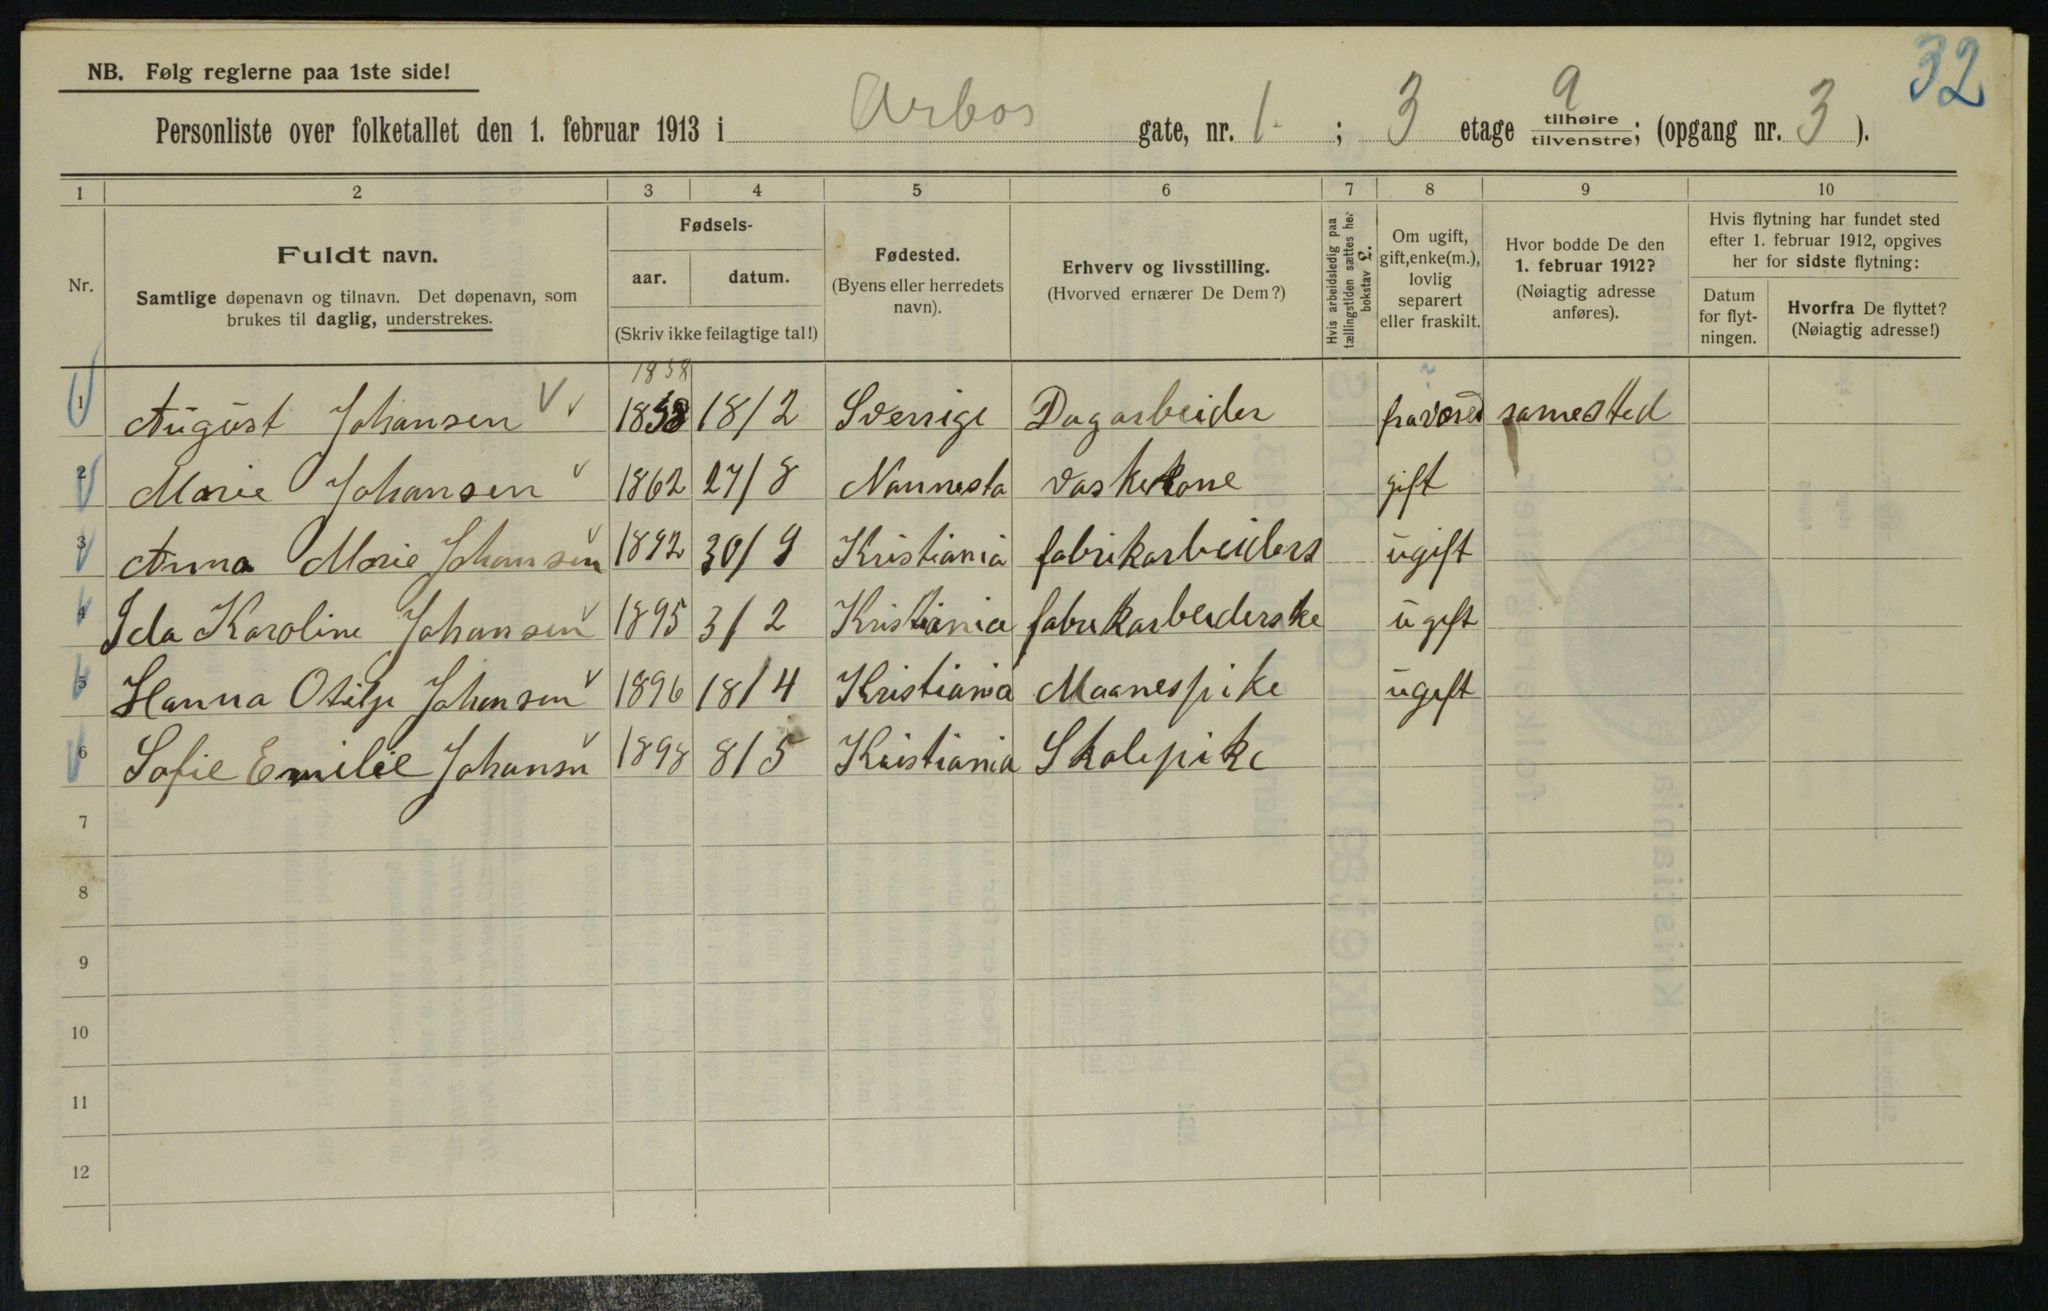 32
NB. Følg reglerne paa 1ste side!
Personliste over folketallet den 1. februar 1913 i Arbos gate, nr. 1 ; 3 etage a tilhøire/tilvenstre; (opgang nr. 3 ).
1 2 3 4 5 6 7 8 9 10
Nr.
Fuldt navn.
Samtlige døpenavn og tilnavn. Det døpenavn, som
brukes til daglig, understrekes.
Fødsels-
aar. datum.
(Skriv ikke feilagtige tal!)
Fødested.
(Byens eller herredets
navn).
Erhverv og livsstilling.
(Hvorved ernærer De Dem?)
Hvis arbeidsledig paa
tællingstiden sættes her
bokstav L.
Om ugift,
gift, enke(m.),
lovlig
separert
eller fraskilt.
Hvor bodde De den
1. februar 1912?
(Nøiagtig adresse
anføres).
Hvis flytning har fundet sted
efter 1. februar 1912, opgives
her for sidste flytning:
Datum
for flyt-
ningen.
Hvorfra De flyttet?
(Nøiagtig adresse!)
1858
1 August Johansen 1858 18/2 Sverrige Dagarbeider samested
2 Marie Johansen 1862 27/8 Nannesta vaskekone gift
3 Anna Marie Johansen 1892 30/9 Kristiania fabrikarbeiders ugift
4 Ida Karoline Johansen 1895 3/2 Kristiania fabrikarbeiderske ugift
5 Hanna Otilje Johansen 1896 18/4 Kristiania Maanespike ugift
6 Sofie Emilie Johansn 1898 8/5 Kristiania Skolepike
7
8
9
10
11
12